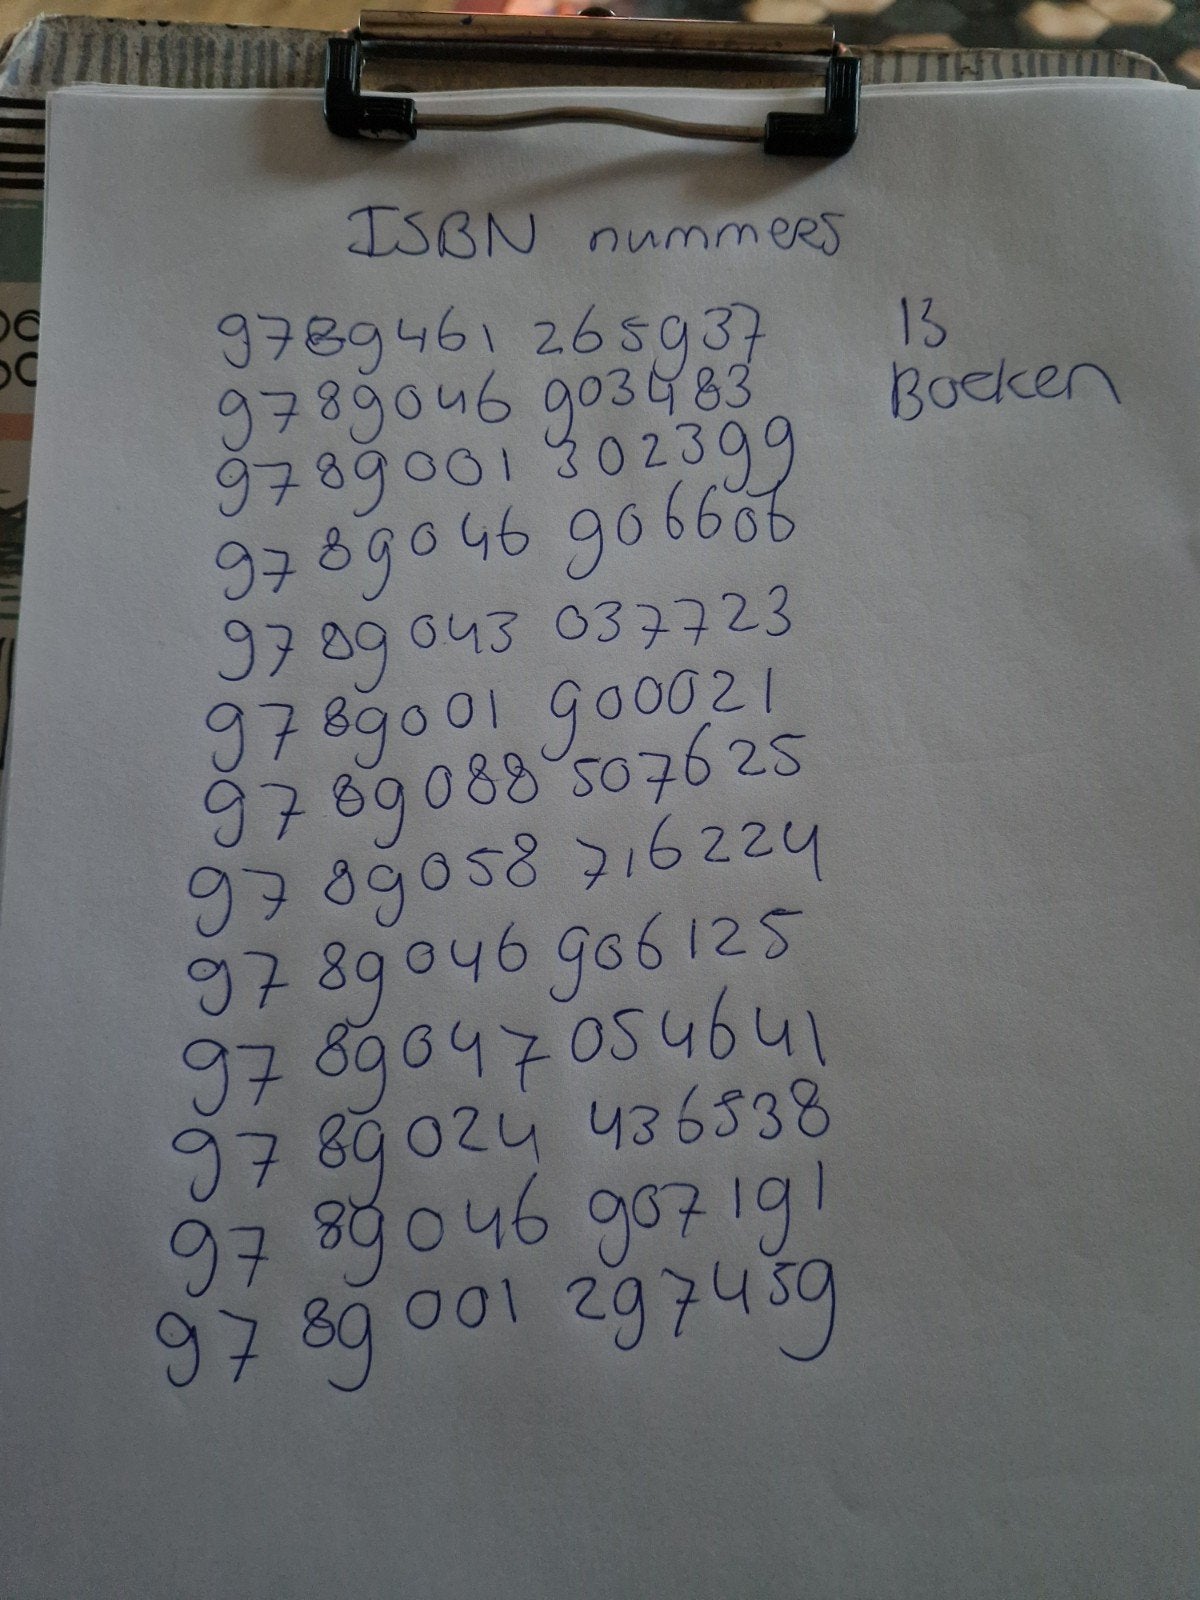 ISBN nummers
9789461 265937 13
9789046 903483 Boeken
9789001 302399
9789046 906606
9789043 037723
9789001 900021
9789088 507625
9789058 716224
9789046 906125
9789047 054641
9789024 436538
9789046 907191
9789001 297459